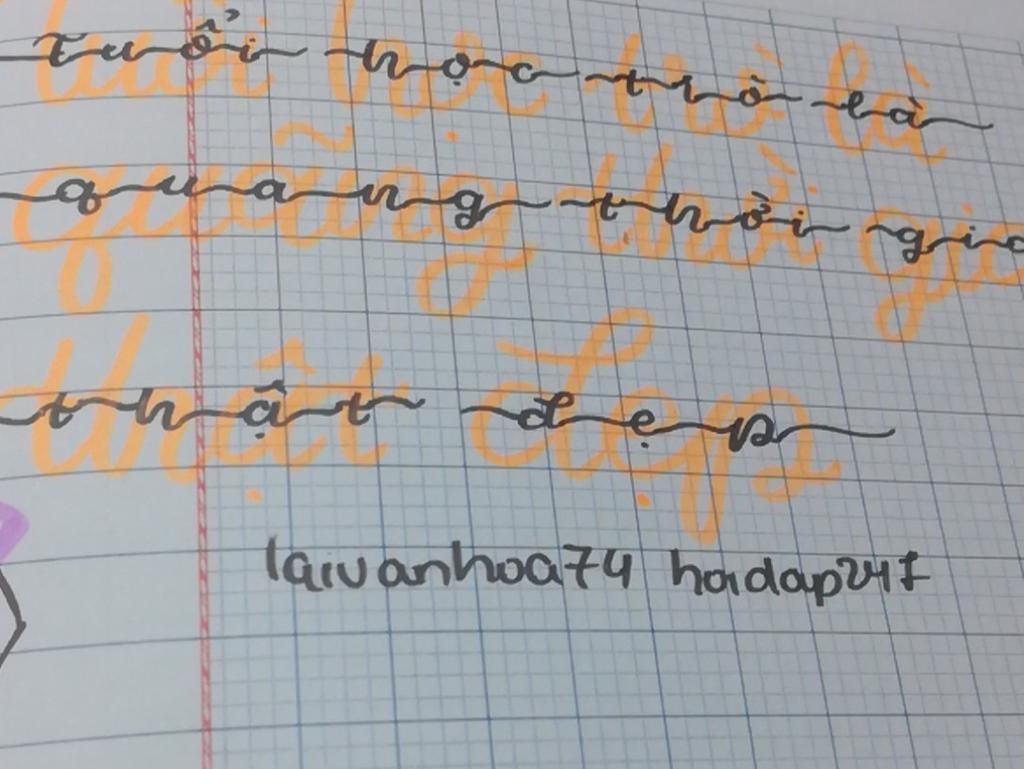 tuổi học trò là
quãng thời gia
thật đẹp
laivanhoa74 hoidap247